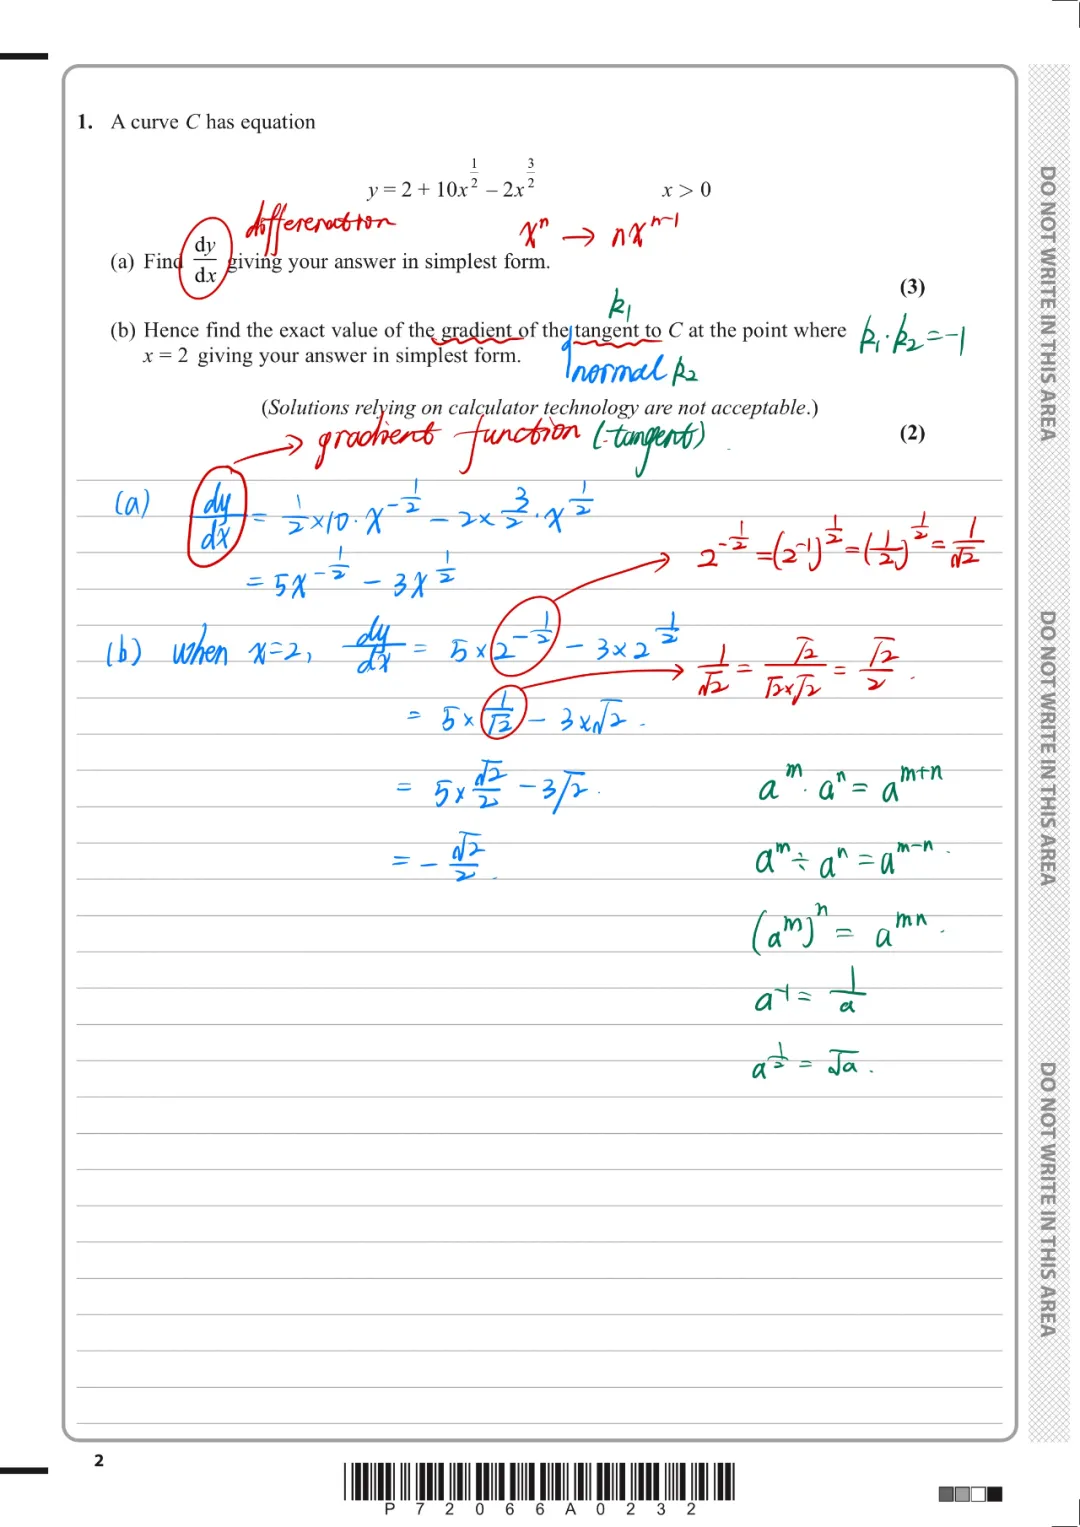 1. A curve C has equation
y = 2 + 10x^{1/2} – 2x^{3/2}    x > 0
differenation    x^n → nx^{n-1}
(a) Find dy/dx giving your answer in simplest form.
(3)
k₁
(b) Hence find the exact value of the gradient of the tangent to C at the point where    k₁·k₂=-1
x = 2 giving your answer in simplest form.
normal k₂
(Solutions relying on calculator technology are not acceptable.)
(2)
→ gradient function (tangent)
(a) dy/dx = 1/2×10·x^{-1/2} – 2×3/2·x^{1/2}
2^{-1/2} = (2^{-1})^{1/2} = (1/2)^{1/2} = 1/√2
= 5x^{-1/2} – 3x^{1/2}
(b) when x=2, dy/dx = 5×2^{-1/2} – 3×2^{1/2}
1/√2 = √2/(√2×√2) = √2/2.
= 5×1/√2 – 3×√2.
= 5×√2/2 – 3√2.
a^m · a^n = a^{m+n}
= -√2/2.
a^m ÷ a^n = a^{m-n}.
(a^m)^n = a^{mn}.
a^{-1} = 1/a
a^{1/2} = √a.
2
P72066A0232
DO NOT WRITE IN THIS AREA
DO NOT WRITE IN THIS AREA
DO NOT WRITE IN THIS AREA